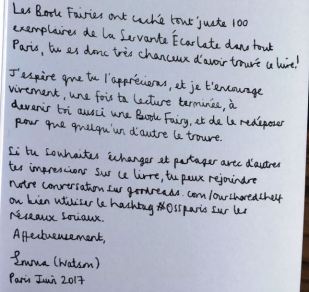 Les Book Fairies ont caché tout juste 100
exemplaires de la Servante Écarlate dans tout
Paris, tu es donc très chanceux d'avoir trouvé ce livre!
J'espère que tu l'apprécieras, et je t'encourage
vivement, une fois ta lecture terminée, à
devenir toi aussi une Book Fairy, et de le redéposer
pour que quelqu'un d'autre le trouve.
Si tu souhaites échanger et partager avec d'autres
tes impressions sur ce livre, tu peux rejoindre
notre conversation sur goodreads.com/oursharedshelf
ou bien utiliser le hashtag #OSSparis sur les
réseaux sociaux.
Affectueusement,
Emma (Watson)
Paris Juin 2017